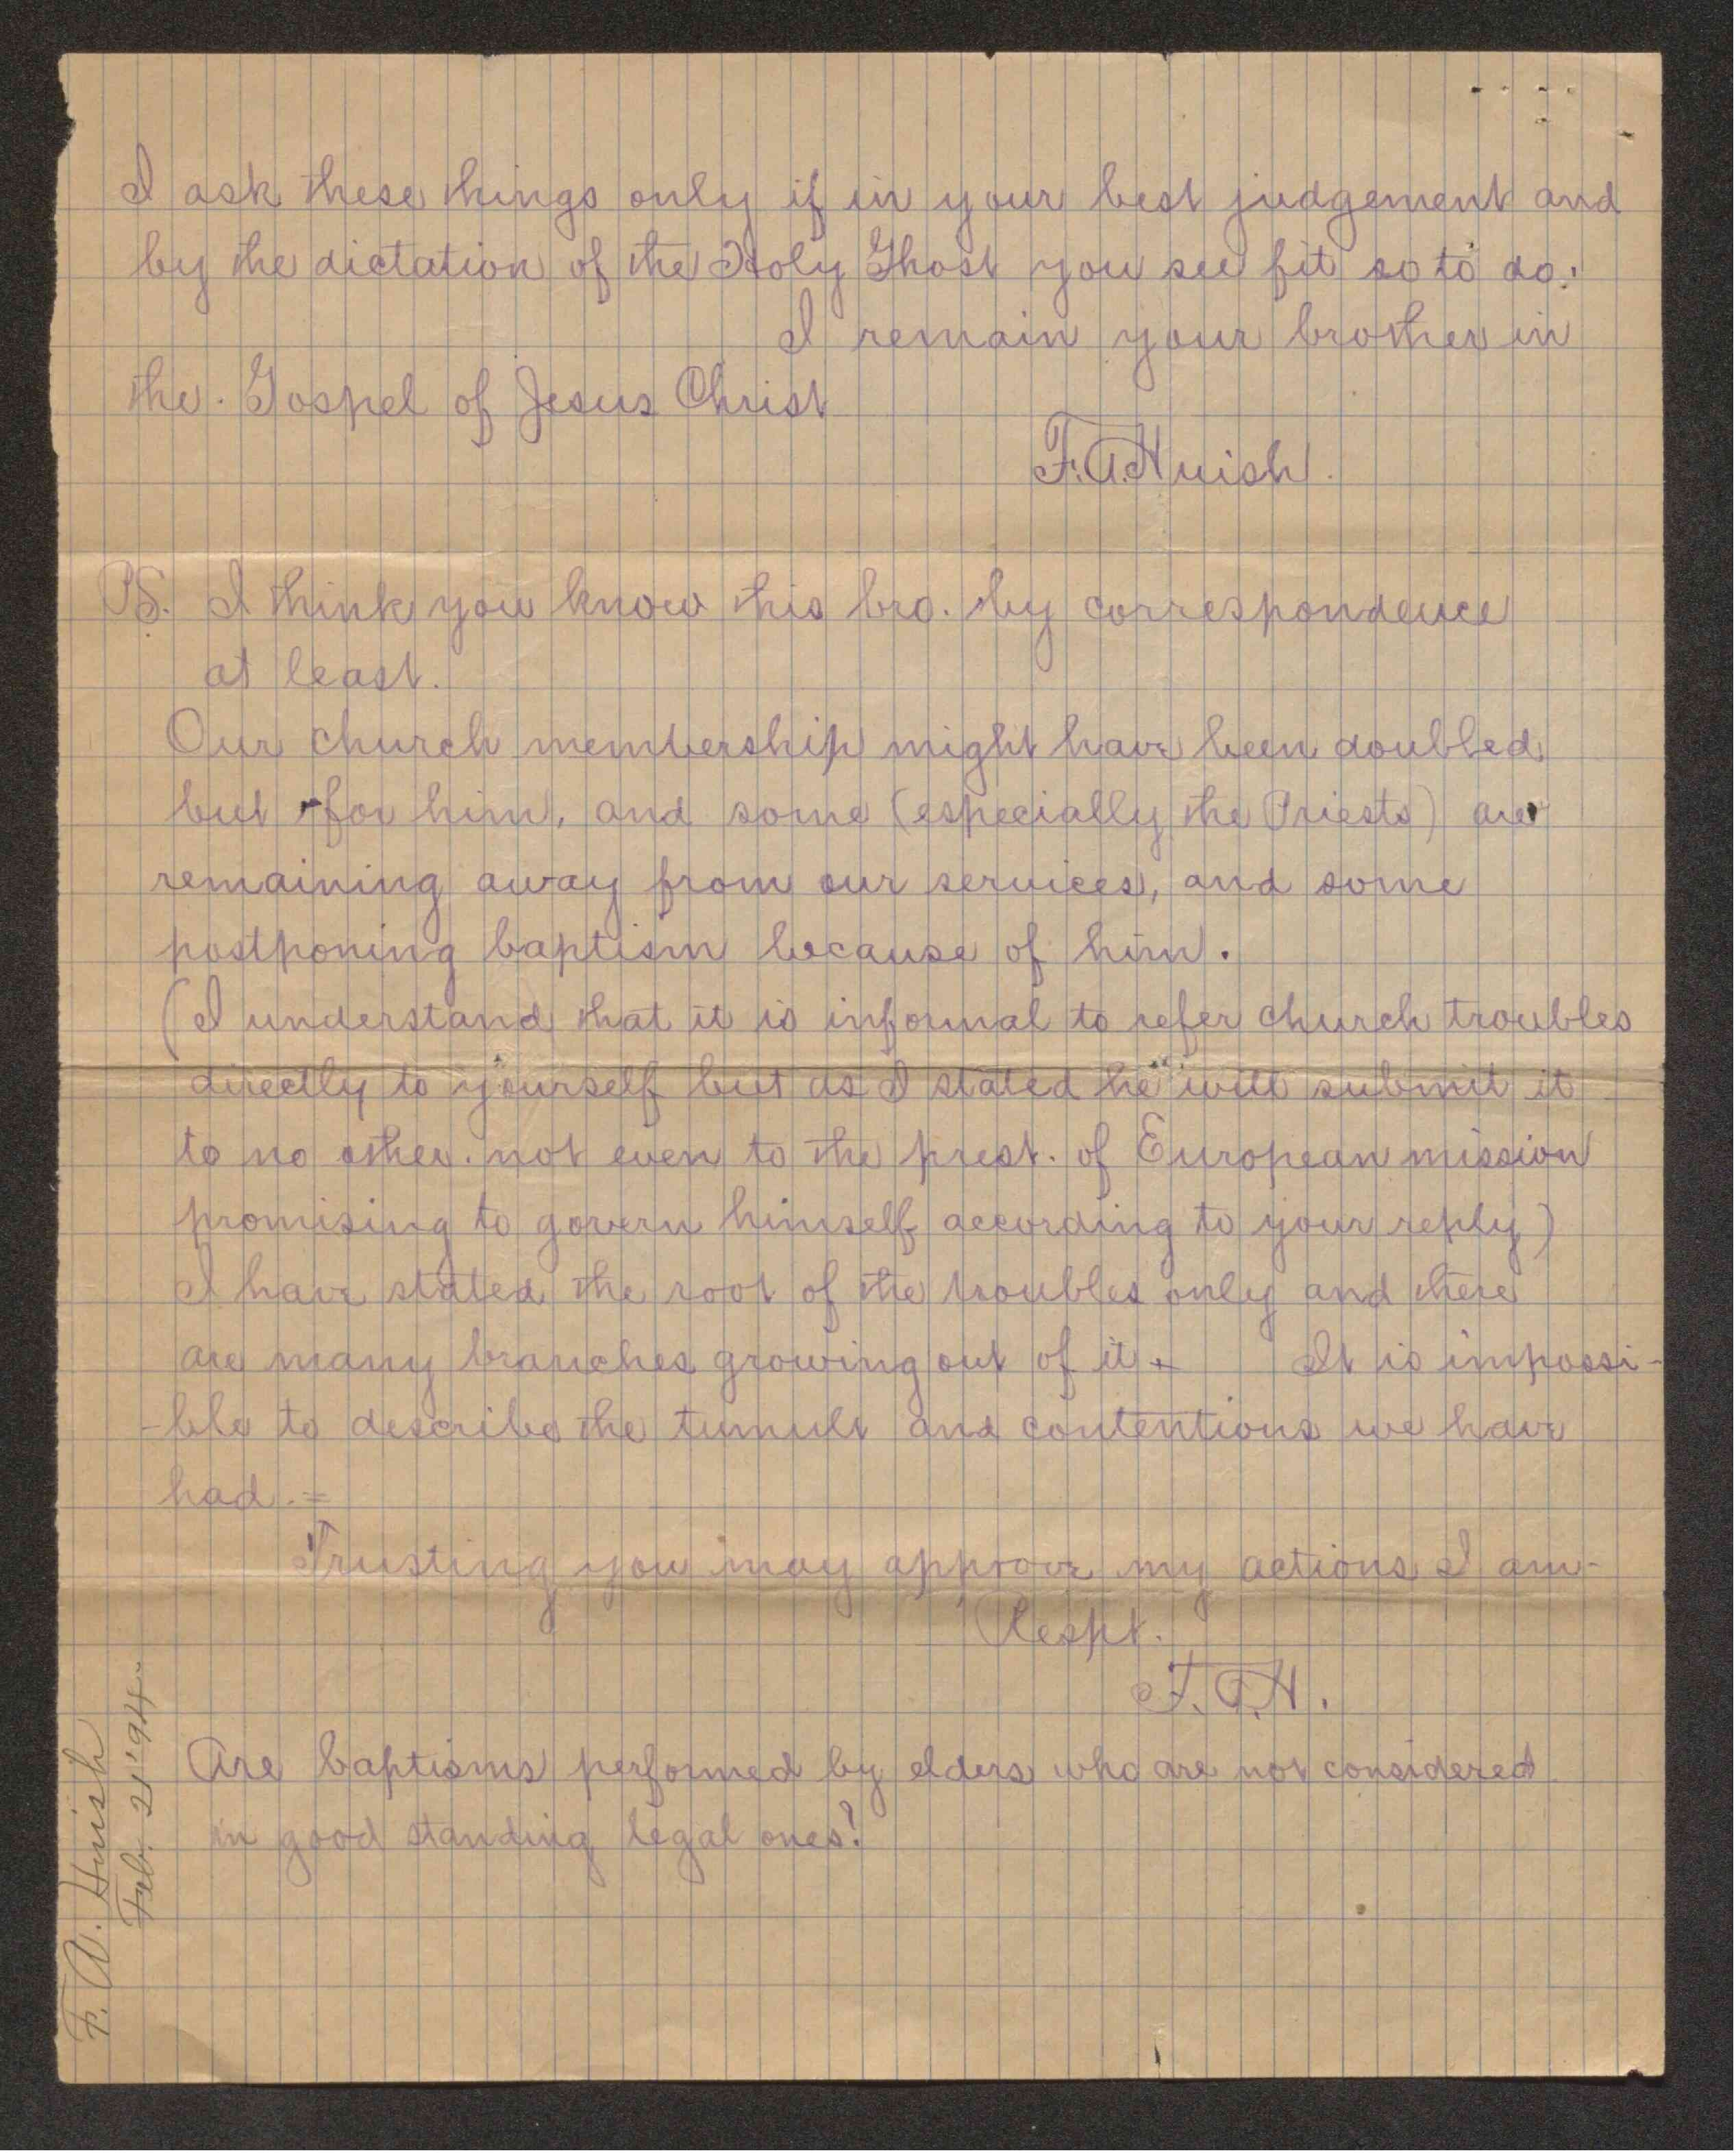 I ask these things only if in your best judgement and
by the dictation of the Holy Ghost you see fit so to do.
I remain your brother in
the. Gospel of Jesus Christ
F.A.Huish.
PS. I think you know this bro. by correspondence
at least.
Our church membership might have been doubled
but for him, and some (especially the Priests) are
remaining away from our services, and some
postponing baptism because of him.
(I understand that it is informal to refer church troubles
directly to yourself but as I stated he will submit it
to no other. not even to the prest. of European mission
promising to govern himself according to your reply)
I have stated the root of the troubles only and there
are many branches growing out of it It is impossi-
-ble to describe the tumult and contentions we have
had.=
Trusting you may approve my actions I am-
Respt.
F.A.H.
Are baptisms performed by elders who are not considered
in good standing legal ones?
F. A. Huish
Feb. 21 '94